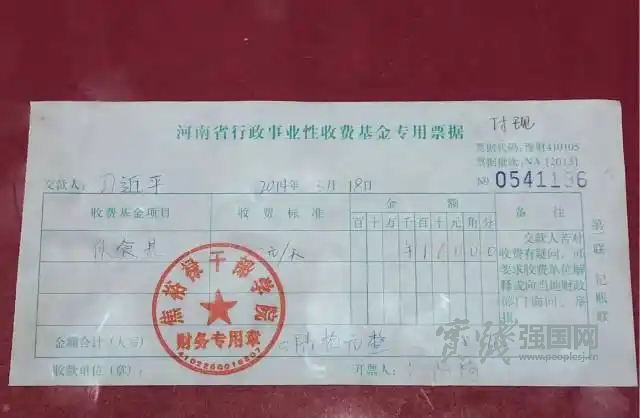 河南省行政事业性收费基金专用票据
付现
票据代码:豫财410105
票据批次:NA [2013]
交款人: 习近平 2014年 3月 18日 № 0541196
收费基金项目 收费标准 金额 备注
百十万千百十元角分
伙食费 元/天
¥ 1 6 0 0 0
交款人若对
收费有疑问,可
要求收费单位解
释或向当地财政
部门询问、举
报。
第一联 记账联
焦裕禄干部学院
财务专用章
4102250016807
金额合计(大写) 陆拾元整
收款单位(章): 开票人:
实践 强国网
www.peoplesj.cn